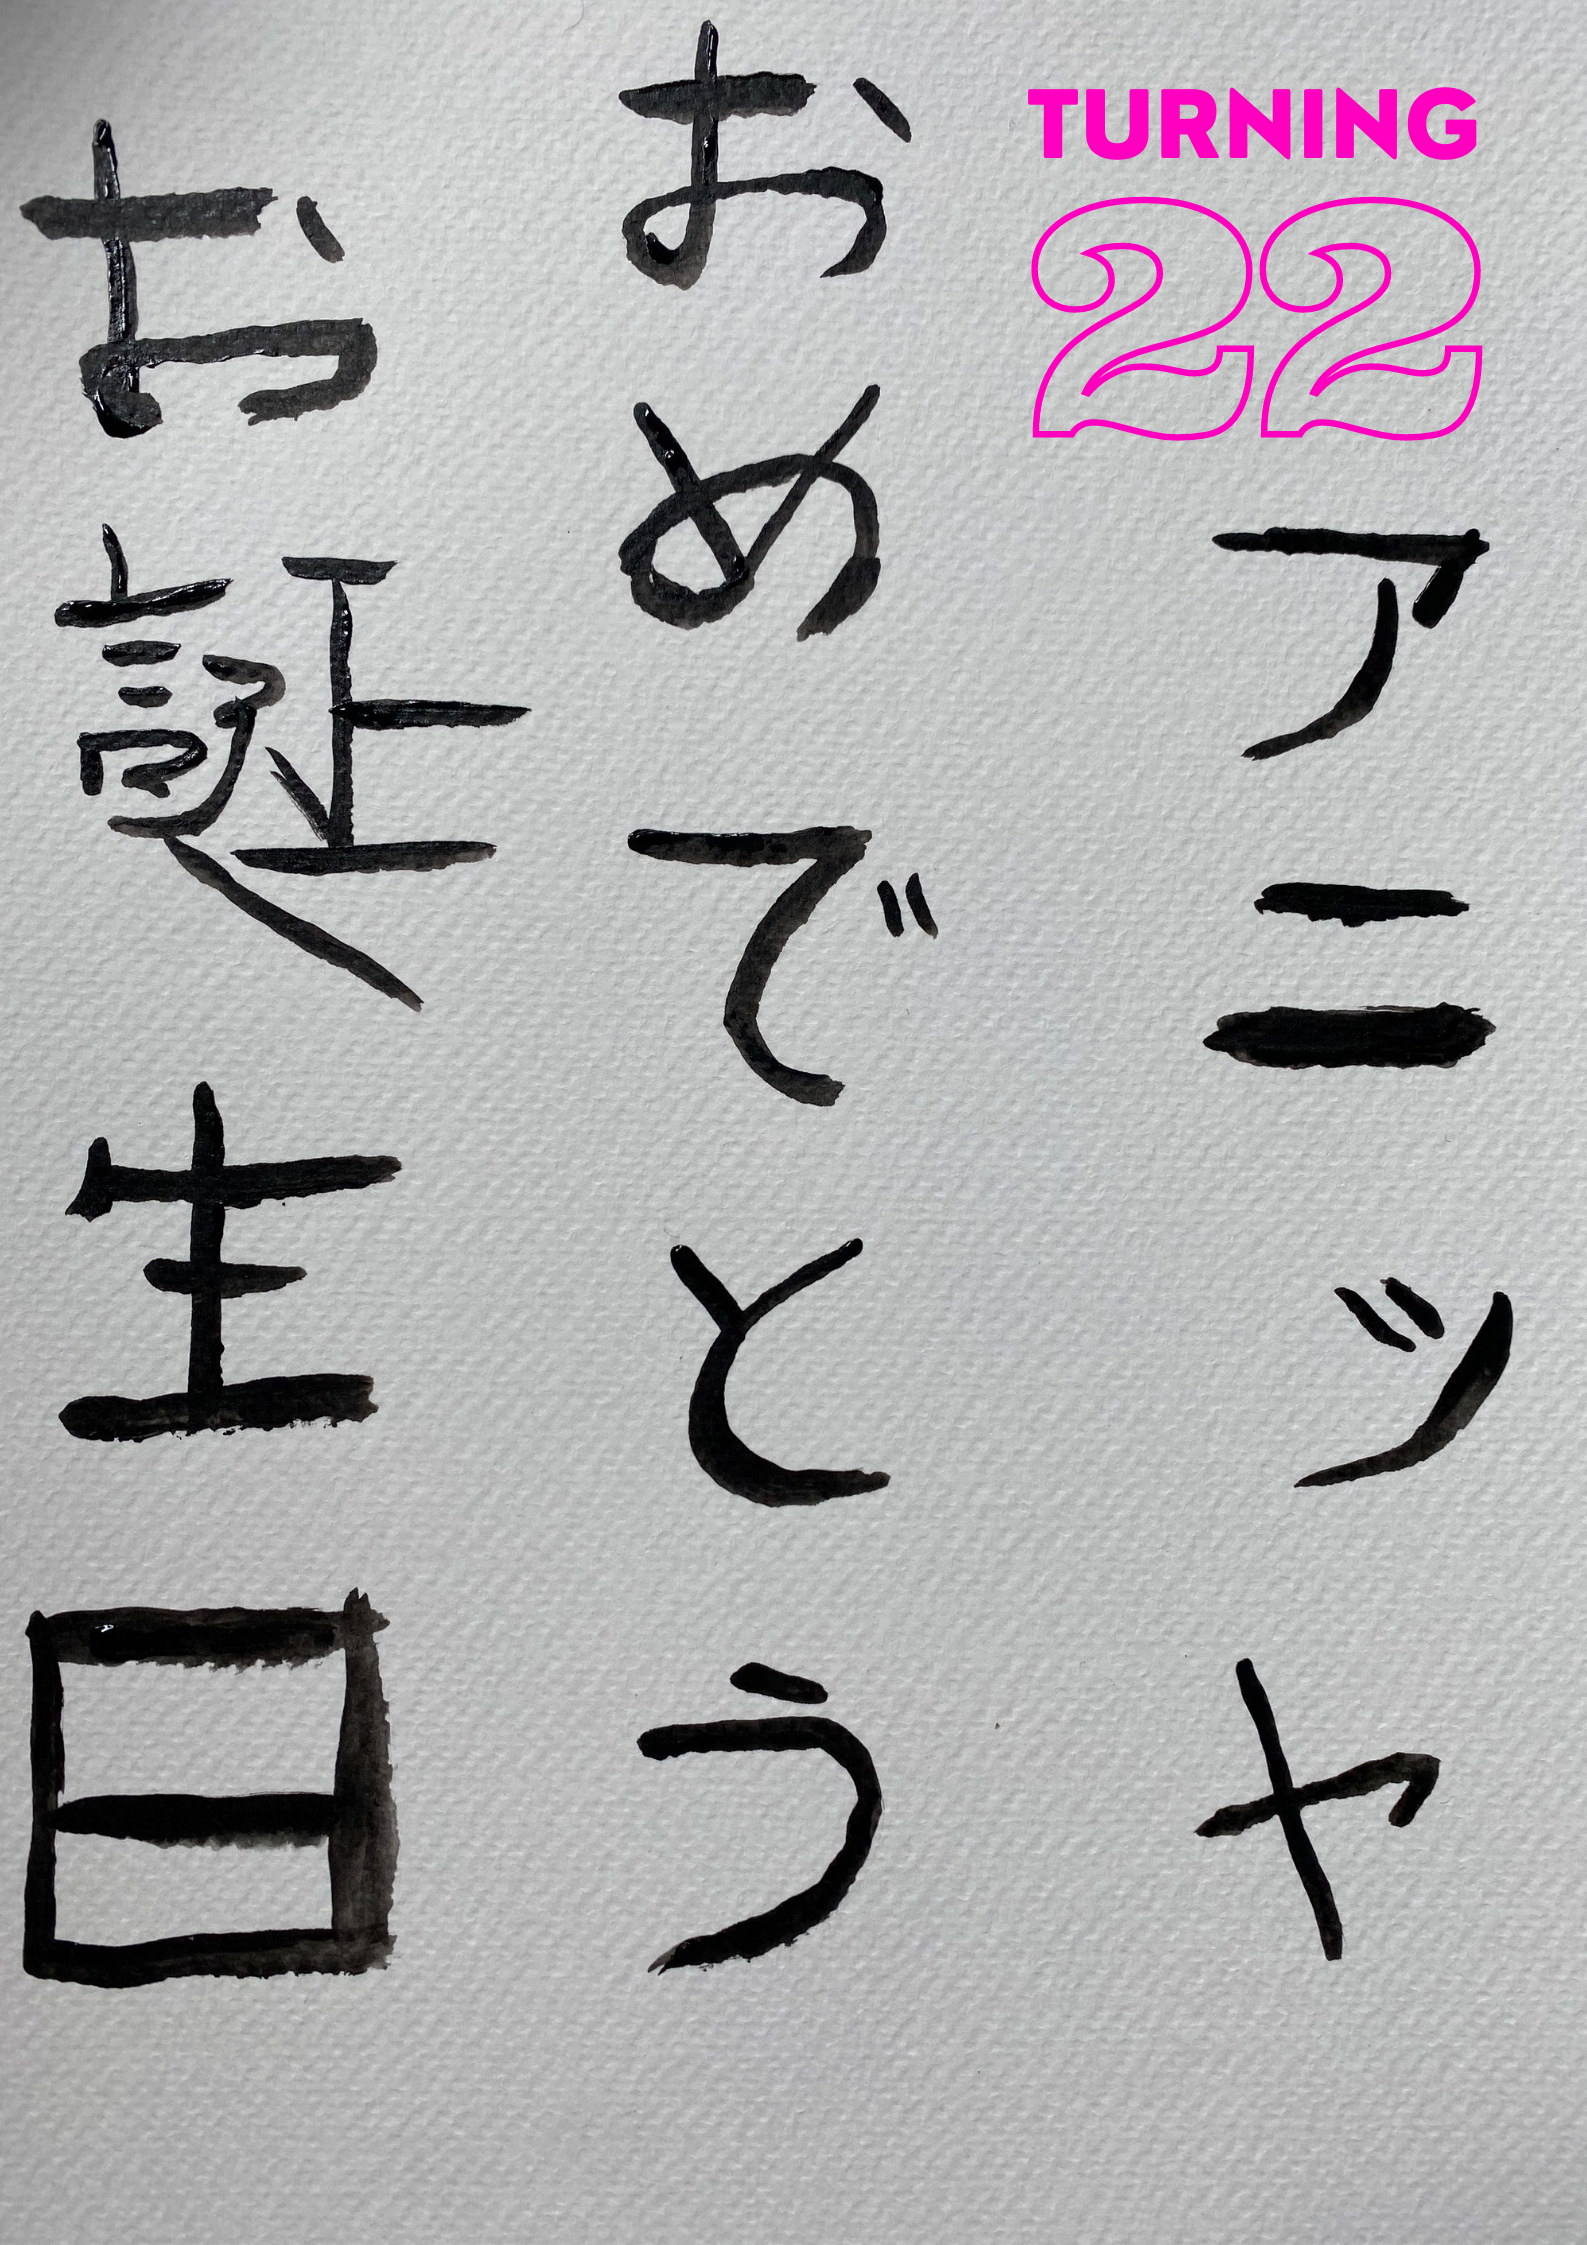 TURNING
22
アニツヤ
おめでとう
お誕生日